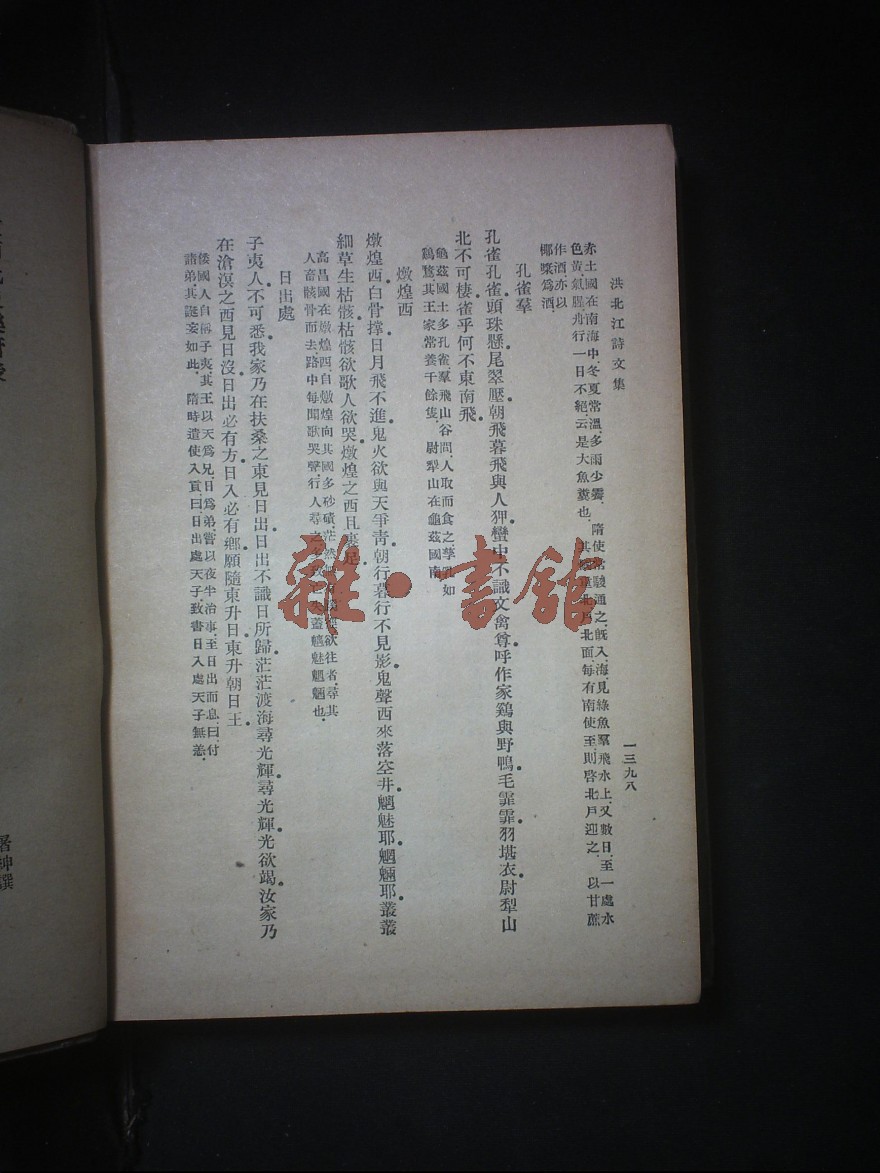 洪北江詩文集
一三九八
赤土國在南海中、冬夏常溫、多雨少霽、隋使常駿通之、旣入海、見綠魚羣飛水上、又數日、至一處、水
色黃、氣腥、舟行一日不絕、云是大魚糞也、其 北戶北面、每有南使至、則啓北戶迎之、以甘蔗
作酒、亦以
椰漿爲酒、
孔雀羣
孔雀孔雀頭珠懸、尾翠壓、朝飛暮飛與人狎、蠻中不識文禽尊、呼作家鷄與野鴨、毛霏霏、羽堪衣、尉犁山
北不可棲、雀乎何不東南飛、
龜茲國土多孔雀、羣飛山谷間、人取而食之、孳乳如
鷄鶩、其王家常養千餘隻、尉犁山在龜茲國南、
燉煌西
燉煌西、白骨撑、日月飛不進、鬼火欲與天爭靑、朝行暮行不見影、鬼聲西來落空井、魑魅耶、魍魎耶、叢叢
細草生枯骸、枯骸欲歌人欲哭、燉煌之西且裹足、
高昌國在燉煌西、自燉煌向其國、多砂磧、茫然 欲往者、尋其
人畜骸骨而去、路中每聞歌哭聲、行人尋之、多致亡失、蓋魑魅魍魎也、
日出處
子夷人、不可悉、我家乃在扶桑之東見日出、日出不識日所歸、茫茫渡海尋光輝、尋光輝、光欲竭、汝家乃
在滄溟之西見日沒、日出必有方、日入必有鄉、願隨東升日、東升朝日王、
倭國人自稱子夷、其王以天爲兄、日爲弟、嘗以夜半治事、至日出而息、曰、付
諸弟、其誕妄如此、隋時遣使入貢、曰、日出處天子、致書日入處天子無恙、